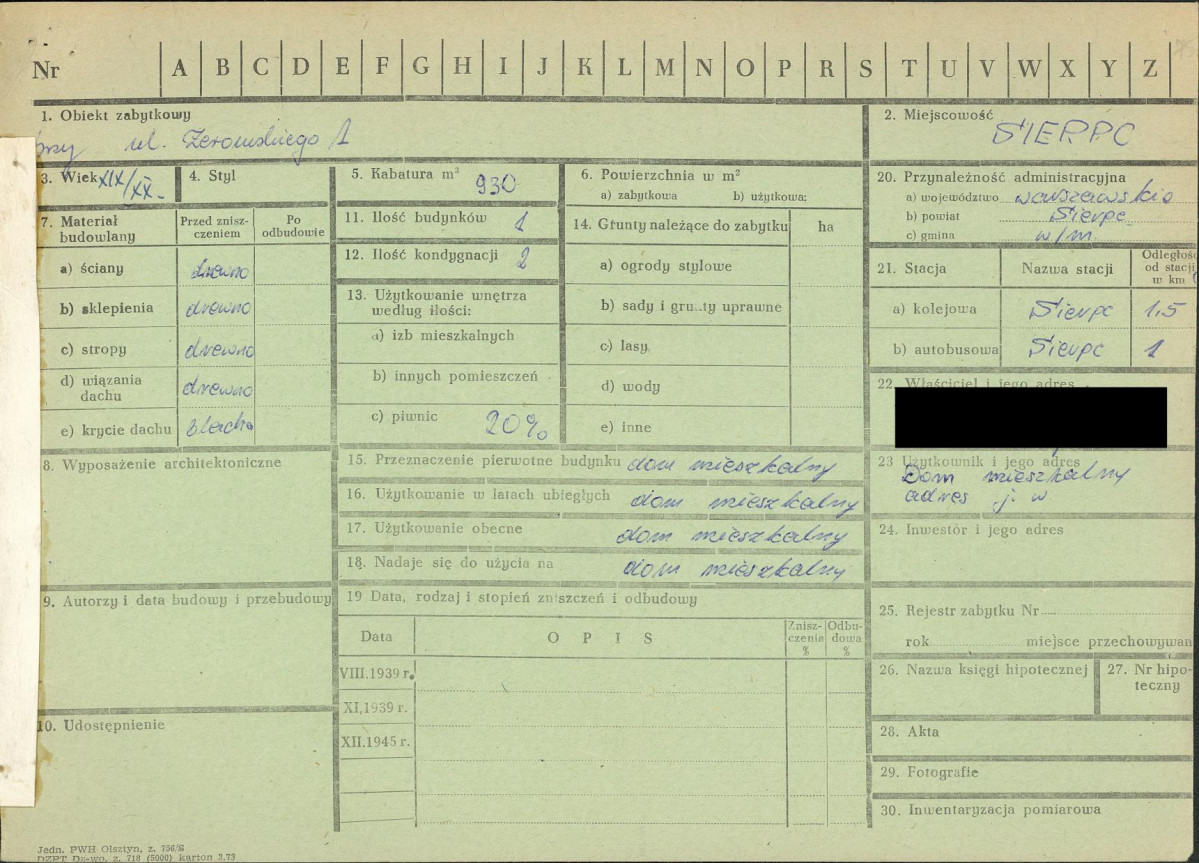 Nr A B C D E F G H I J K L M N O P R S T U V W X Y Z
1. Obiekt zabytkowy
przy ul. Żeromskiego 1
2. Miejscowość
SIERPC
3. Wiek XIX/XX.
4. Styl
5. Kabatura m³ 930
6. Powierzchnia w m²
a) zabytkowa b) użytkowa:
20. Przynależność administracyjna
a) województwo warszawskie
b) powiat Sierpc
c) gmina w/m.
7. Materiał budowlany
Przed zniszczeniem
Po odbudowie
a) ściany drewno
b) sklepienia drewno
c) stropy drewno
d) wiązania dachu drewno
e) krycie dachu blacha
11. Ilość budynków 1
12. Ilość kondygnacji 2
13. Użytkowanie wnętrza według ilości:
a) izb mieszkalnych
b) innych pomieszczeń
c) piwnic 20%
14. Gfunty należące do zabytku ha
a) ogrody stylowe
b) sady i gru..ty uprawne
c) lasy
d) wody
e) inne
21. Stacja Nazwa stacji Odległość od stacji w km
a) kolejowa Sierpc 1,5
b) autobusowa Sierpc 1
22. Właściciel i jego adres
23 Użytkownik i jego adres
Dom mieszkalny
adres j. w
8. Wyposażenie architektoniczne
15. Przeznaczenie pierwotne budynku dom mieszkalny
16. Użytkowanie w latach ubiegłych dom mieszkalny
17. Użytkowanie obecne dom mieszkalny
18. Nadaje się do użycia na dom mieszkalny
24. Inwestor i jego adres
9. Autorzy i data budowy i przebudowy
19 Data, rodzaj i stopień zniszczeń i odbudowy
Data OPIS Zniszczenia % Odbudowa %
VIII.1939 r.
XI,1939 r.
XII.1945 r.
25. Rejestr zabytku Nr
rok miejsce przechowywan
26. Nazwa księgi hipotecznej
27. Nr hipoteczny
10. Udostępnienie
28. Akta
29. Fotografie
30. Inwentaryzacja pomiarowa
Jedn. PWH Olsztyn, z. 756/S
DZPT Dz-wo, z. 718 (5000) karton 3.73